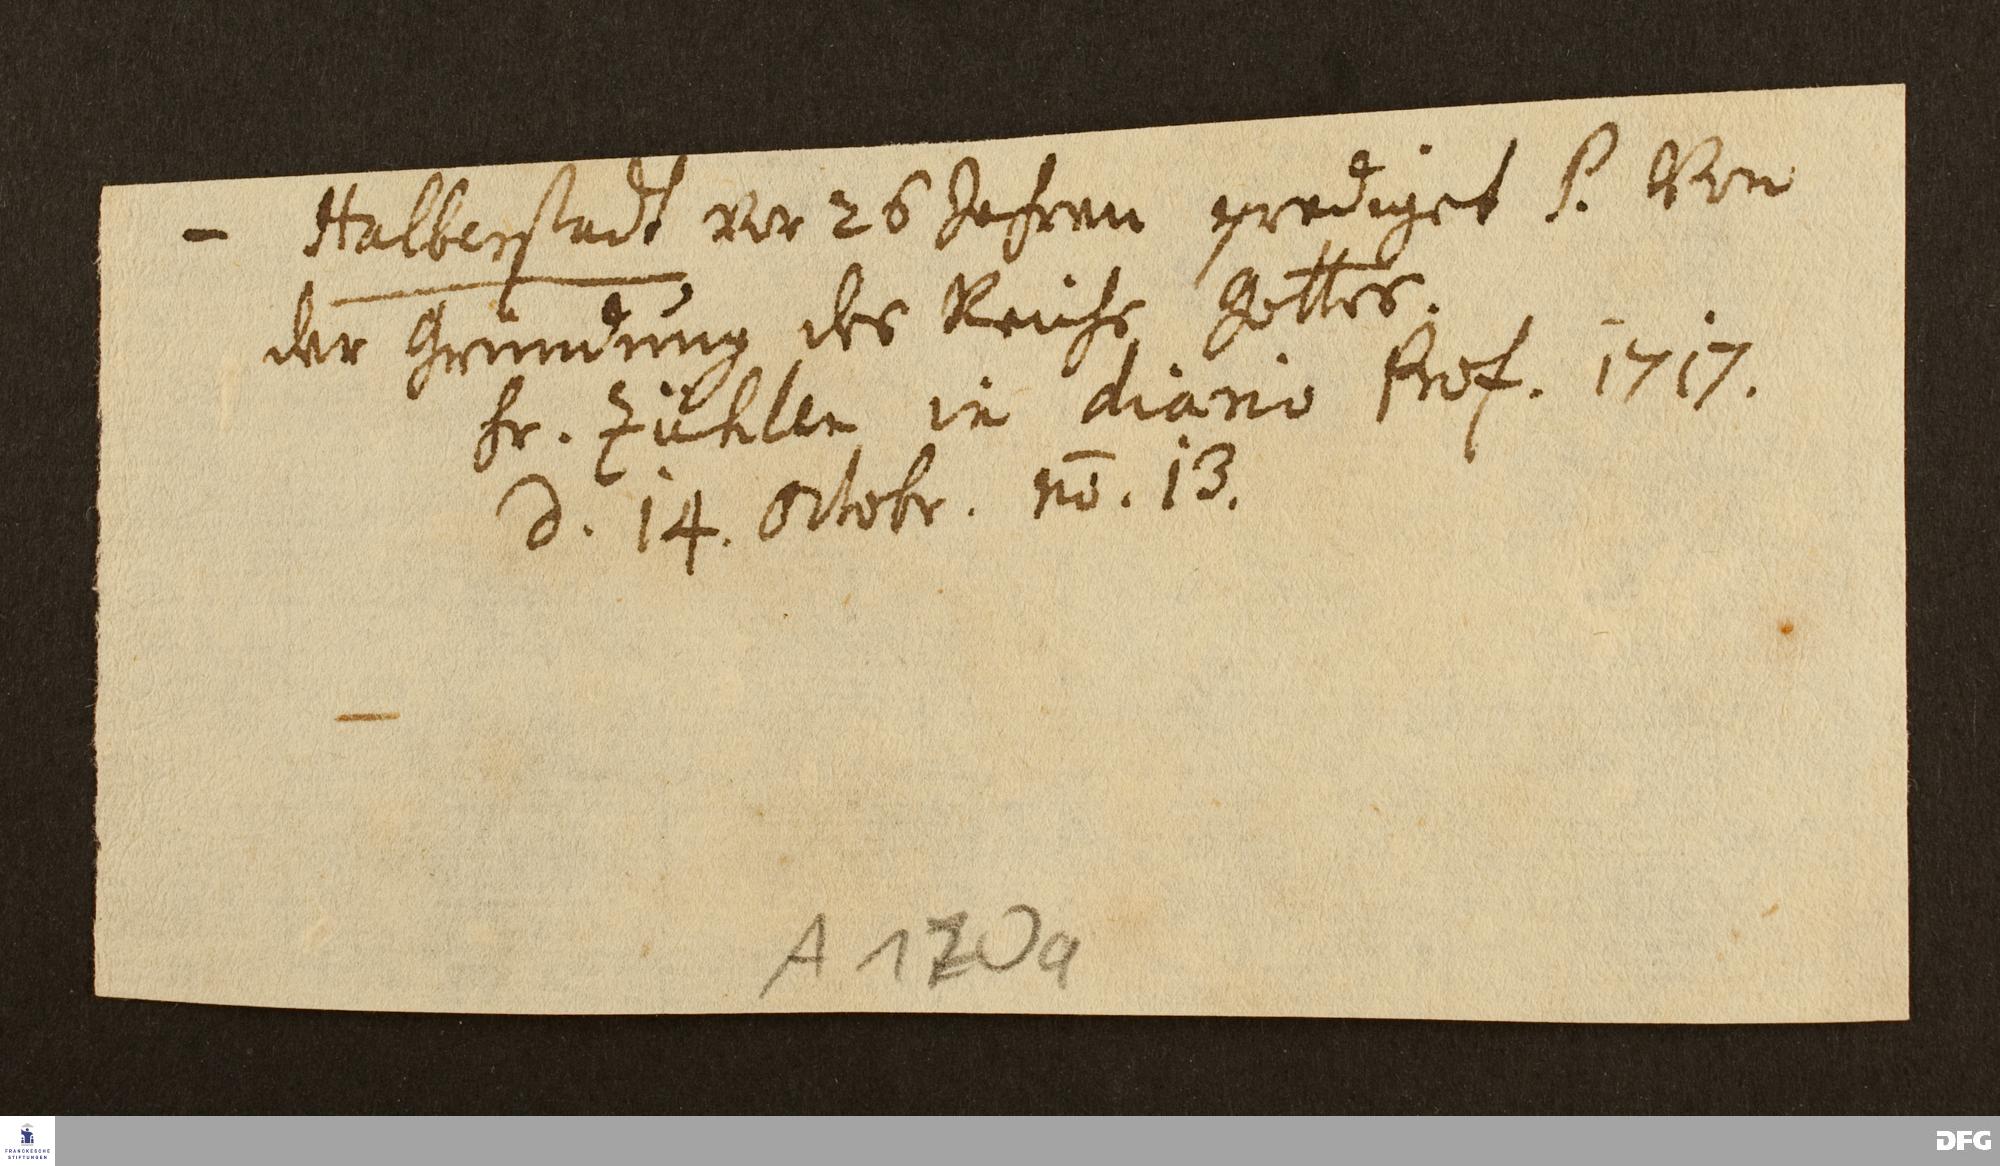 - Halberstadt vor 26 Jahren prediget S. Von
der Gründung des Reichs Gottes.
hr. Zühlen in diario Prof. 1717.
D. 14. Octobr. no. 13.
A 170a
FRANCKESCHE
STIFTUNGEN
DFG